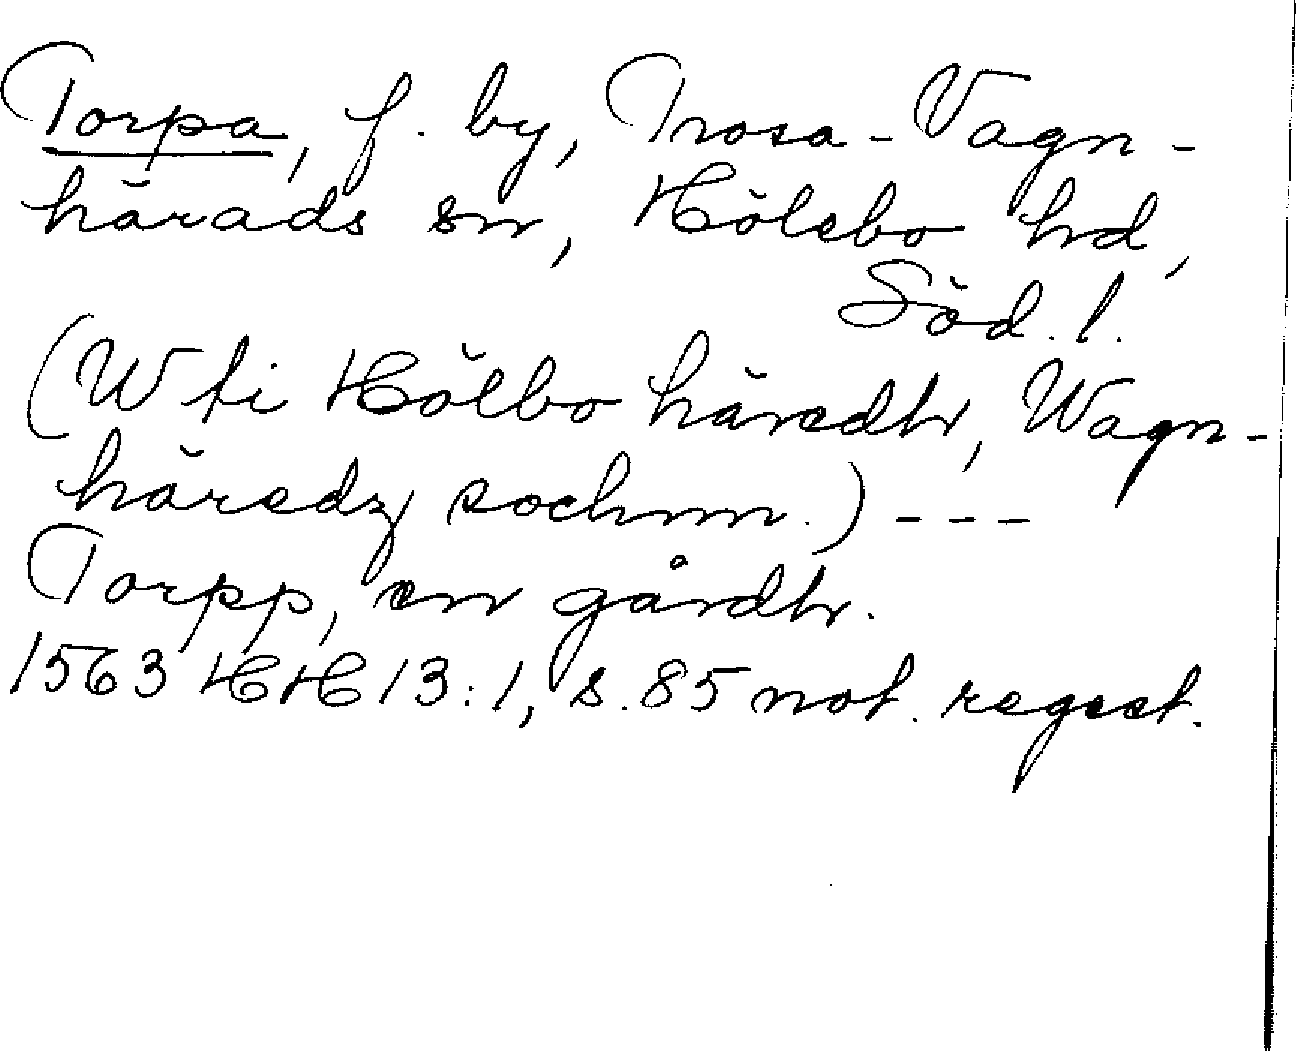 Torpa, f. by, Trosa-Vagn-
härads sn, Hölebo hd,
Söd. l.
(W ti Hölbo häredtr, Wagn-
häredz sochnn.) ---
Torpp, en gårdtr.
1563 HH 13:1, s. 85 not. regest.